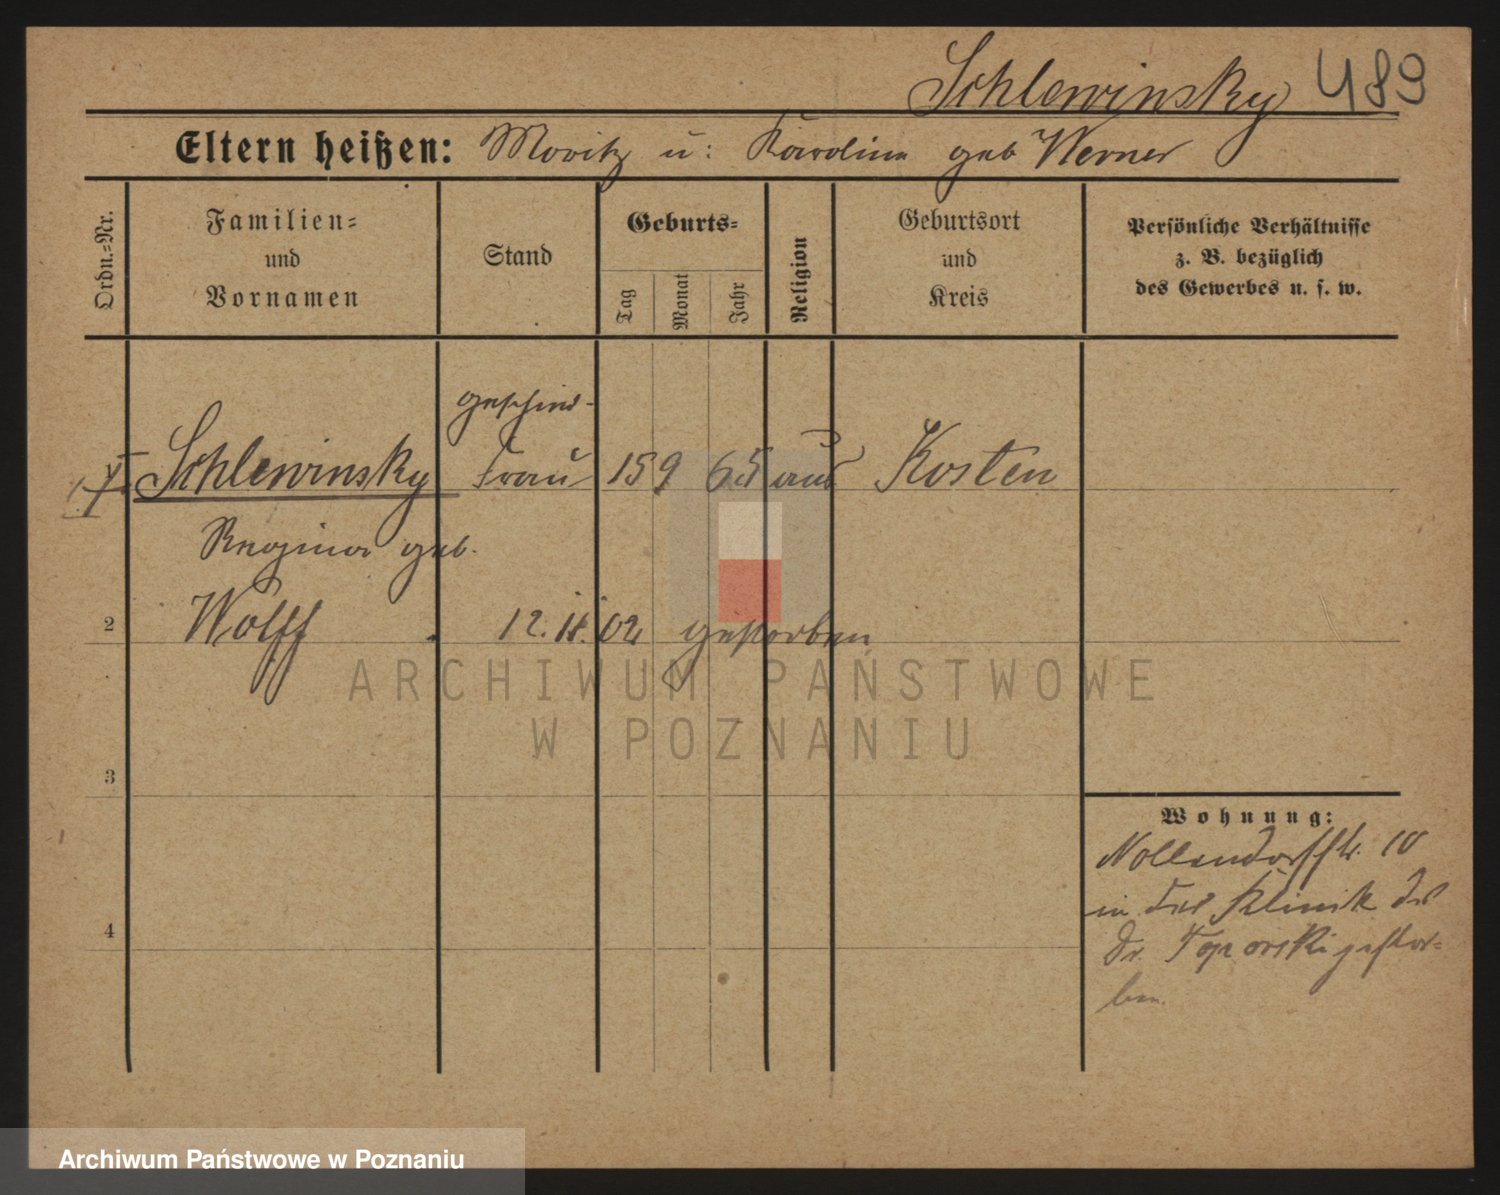 Schlewinsky 489
Eltern heißen: Moritz u: Karoline geb Werner
Ordn.-Nr.
Familien-
und
Vornamen
Stand
Geburts-
Tag
Monat
Jahr
Religion
Geburtsort
und
Kreis
Persönliche Verhältnisse
z. B. bezüglich
des Gewerbes u. s. w.
Schlewinsky
Frau
15 9 65
Kosten
Regina geb.
2
Wolff
12. 11. 02 gestorben
3
4
Wohnung:
Nollendorffstr. 10
in der Klinik des
Dr. Toporski gestor=
ben.
ARCHIWUM PAŃSTWOWE
W POZNANIU
Archiwum Państwowe w Poznaniu